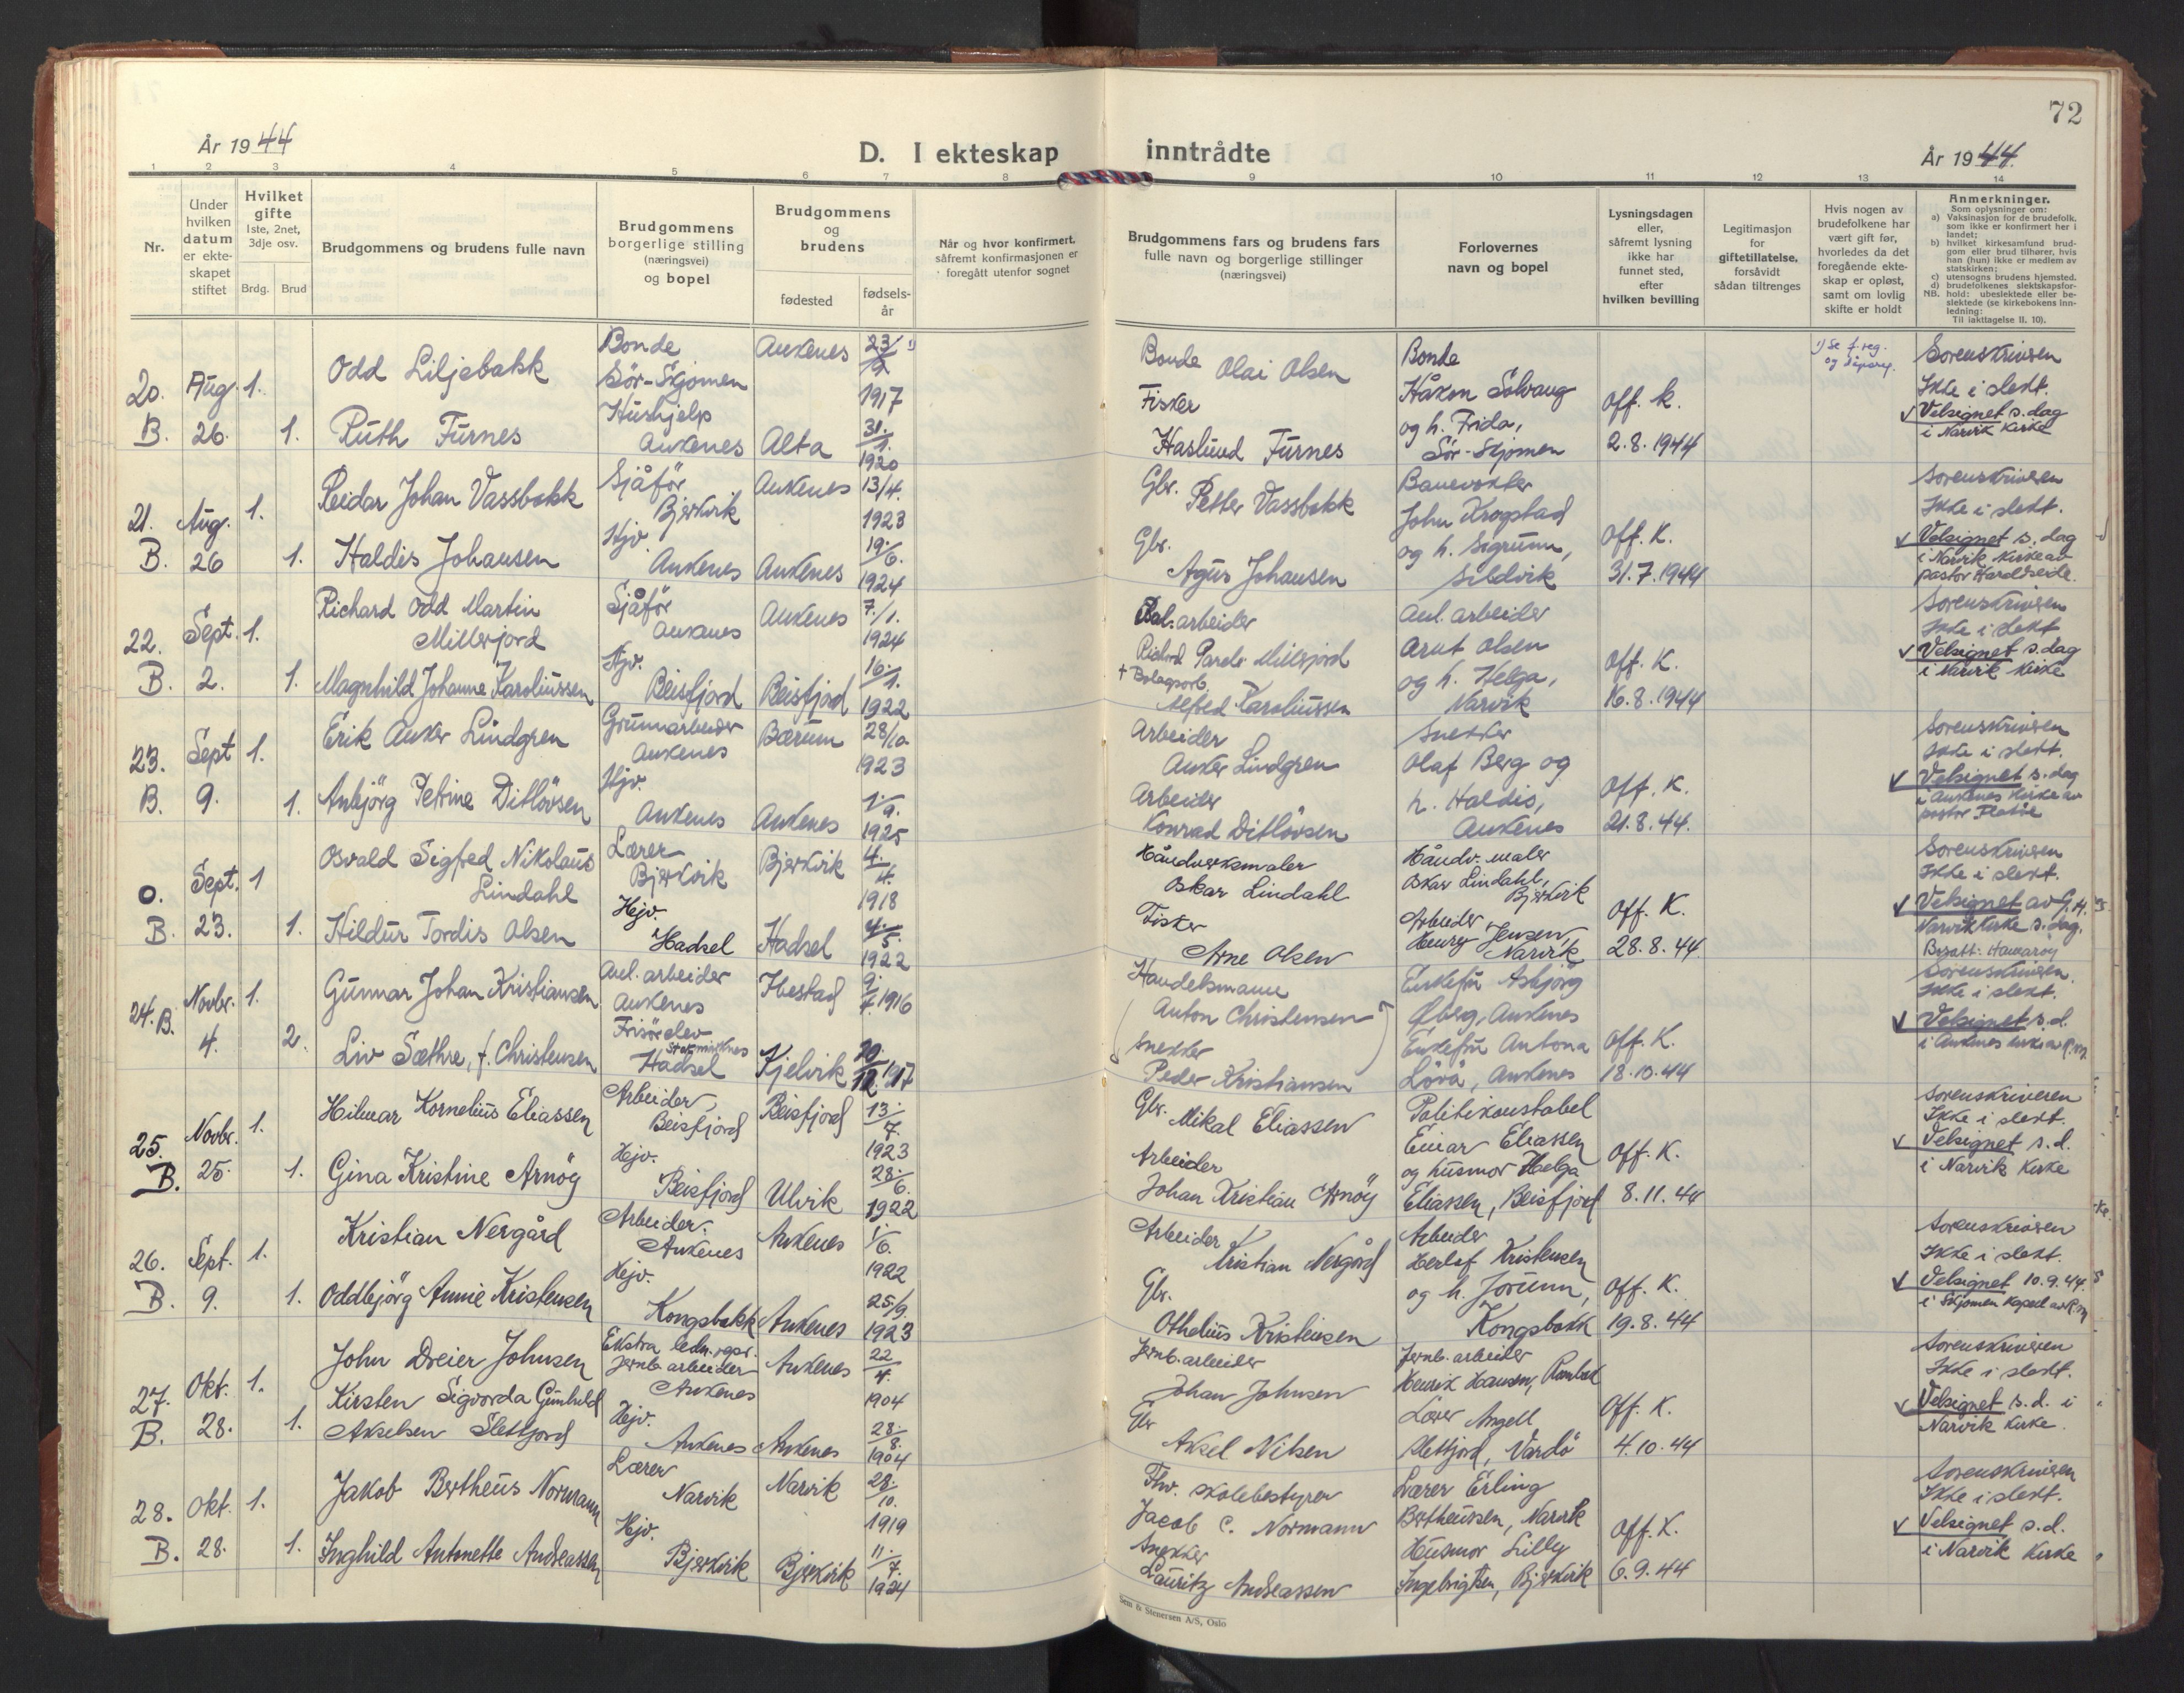 72
År 1944
D. I ekteskap inntrådte
År 1944.
1 2 3 4 5 6 7 8 9 10 11 12 13 14
Nr.
Under hvilken datum er ekte-skapet stiftet
Hvilket gifte
1ste, 2net, 3dje osv.
Brdg. Brud
Brudgommens og brudens fulle navn
Brudgommens borgerlige stilling (næringsvei) og bopel
Brudgommens og brudens
fødested
fødsels-år
Når og hvor konfirmert, såfremt konfirmasjonen er foregått utenfor sognet
Brudgommens fars og brudens fars fulle navn og borgerlige stillinger (næringsvei)
Forlovernes navn og bopel
Lysningsdagen eller, såfremt lysning ikke har funnet sted, efter hvilken bevilling
Legitimasjon for giftetillatelse, forsåvidt sådan tiltrenges
Hvis nogen av brudefolkene har vært gift før, hvorledes da det foregående ekte-skap er opløst, samt om lovlig skifte er holdt
Anmerkninger.
Som oplysninger om:
a) Vaksinasjon for de brudefolk. som ikke er konfirmert her i landet;
b) hvilket kirkesamfund brud-gom eller brud tilhører, hvis han (hun) ikke er medlem av statskirken;
c) utensogns brudens hjemsted.
d) brudefolkenes slektskapsfor-hold: ubeslektede eller be-slektede (se kirkebokens inn-ledning:
NB.
Til iakttagelse II. 10).
20. Aug. 1. Odd Liljebakk Bonde Sör-Skjomen Ankenes 1917 Bonde Olai Olsen
B. 26. 1. Ruth Furnes Hushjelp Ankenes Alta 31/1. 1920 Fisker Haslund Furnes
Bonde Håkon Solvang og h. Frida, Sör-Skjomen
Off. k. 2.8.1944
1) Se f.reg. og dåpsreg.
Sorenskriveren
Ikke i slekt.
Velsignet s. dag
i Narvik kirke
21. Aug. 1. Reidar Johan Vassbakk Sjåför Bjerkvik Ankenes 13/4. 1923 Gbr. Petter Vassbakk
B. 26 1. Haldis Johansen Hjv. Ankenes Ankenes 19/6. 1924 Gbr. Agus Johansen
Banevokter John Krogstad og h. Sigrunn, Sildvik
Off. K. 31.7.1944
Sorenskriveren
Ikke i slekt.
Velsignet s. dag
i Narvik kirke av
pastor Haraldseide.
22. Sept. 1. Richard Odd Martin Millerjord Sjåför Ankenes Ankenes 7/1. 1924 arbeider Millerjord
B. 2. 1. Magnhild Johanne Karoliussen Hjv. Beisfjord Beisfjord 16/1. 1922 Alfred Karoliussen
Anl. arbeider Arnt Olsen og h. Helga, Narvik
Off. K. 16.8.1944
Sorenskriveren
Ikke i slekt
Velsignet s. dag
i Narvik kirke
23. Sept 1. Erik Anker Lindgren Grunnarbeider Ankenes Bærum 28/10 1923 Arbeider Anker Lindgren
B. 9. 1. Anbjörg Petrine Ditlövsen Hjv. Ankenes Ankenes 1/9. 1925 Arbeider Konrad Ditlövsen
Snekker Olaf Berg og h. Haldis, Ankenes
Off. K. 21.8.44.
Sorenskriveren
Ikke i slekt.
Velsignet s. dag
i Ankenes kirke av
pastor
0. Sept. 1 Osvald Sigfred Nikolaus Lindahl Lærer Bjerkvik Bjerkvik 4/4. 1918 Håndverksmaler Oskar Lindahl
B. 23. 1. Hildur Tordis Olsen Hjv. Hadsel Hadsel 1922 Fisker Arne Olsen
Håndv. maler Oskar Lindahl, Bjerkvik
Arbeider Henry Jensen, Narvik
Off. K. 28.8.44.
Sorenskriveren
Ikke i slekt.
Velsignet av
Narvik kirke s. dag.
Bosatt: Hamarøy
24. B. Novbr. 1. Gunnar Johan Kristiansen Anl. arbeider Ankenes Ibestad 1916 Handelsmann Anton Christensen
4. 2. Liv Sæthre, f. Christensen Frisörelev Stokmarknes Hadsel Kjelvik 20/12 1917 Snekker Peder Kristiansen
Enkefru Asbjörg Öberg, Ankenes
Enkefru Antona Lövå, Ankenes
Off. K. 18.10.44
Sorenskriveren.
Ikke i slekt.
Velsignet s.d.
i Ankenes kirke av
25. Novbr. 1. Hilmar Kornelius Eliassen Arbeider, Beisfjord Beisfjord 13/7. 1923 Gbr. Mikal Eliassen
B. 25. 1. Gina Kristine Arnöy Hjv. Beisfjord Ulvik 28/6. 1922 Arbeider Johan Kristian Arnöy
Politikonstabel Einar Eliassen og husmor Helga Eliassen, Beisfjord
Off. K. 8.11.44
Sorenskriveren
Ikke i slekt.
Velsignet s.d.
i Narvik kirke
26. Sept. 1. Kristian Nergård Arbeider. Ankenes Ankenes 1/6. 1922 Arbeider Kristian Nergård
B. 9. 1. Oddbjörg Annie Kristensen Hjv. Kongsbakk Ankenes 25/9. 1923 Gbr. Othelius Kristensen
Arbeider Herlof Kristensen og h. Jorunn, Kongsbakk
Off. K. 19.8.44
Sorenskriveren
Ikke i slekt.
Velsignet 10.9.44
i Skjomen kapell av
27. Okt. 1. John Dreier Johnsen Ekstra ledn. rep. jernb. arbeider Ankenes Ankenes 22/4. 1904 Jernb. arbeider Johan Johnsen
B. 28. 1. Kirsten Sigvorda Gunhild Akselsen Slettjord Hjv. Ankenes Ankenes 28/8. 1904 Gbr Aksel Nilsen
Jernb. arbeider Henrik Hansen, Rombak
Lærer Angell Slettjord, Vardö
Off. K. 4.10.44
Sorenskriveren
Ikke i slekt.
Velsignet s.d. i
Narvik kirke.
28. Okt. 1. Jakob Bertheus Normann Lærer Narvik Narvik 28/10. 1919 Fhv. skolebestyrer Jacob C. Normann
B. 28. 1. Inghild Antonette Andreassen Hjv. Bjerkvik Bjerkvik 11/7. 1924 Snekker Lauritz Andreassen
Lærer Erling Bertheussen, Narvik
Husmor Lilly Ingebrigtsen, Bjerkvik
Off. K. 6.9.44
Sorenskriveren
Ikke i slekt.
Velsignet s.d.
i Narvik kirke
Sem & Stenersen A/S, Oslo